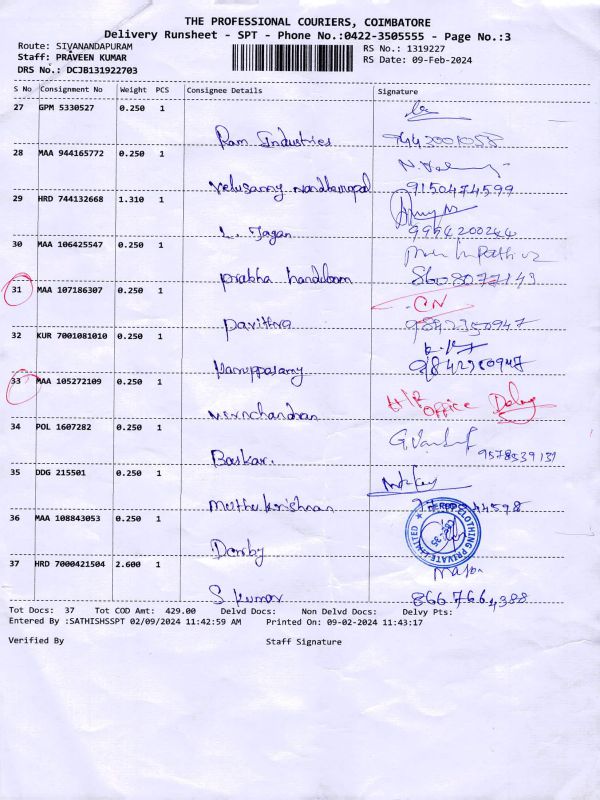 THE PROFESSIONAL COURIERS, COIMBATORE
Delivery Runsheet - SPT - Phone No.:0422-3505555 - Page No.:3
Route: SIVANANDAPURAM
RS No.: 1319227
Staff: PRAVEEN KUMAR
RS Date: 09-Feb-2024
DRS No.: DCJB131922703
S No Consignment No Weight PCS Consignee Details Signature
27 GPM 5330527 0.250 1
Ram Industries 9442001058
28 MAA 944165772 0.250 1
Velusamy Nandhagopal 9150474599
29 HRD 744132668 1.310 1
L. Jagan 9994200244
30 MAA 106425547 0.250 1
Prabha handloom 8608077143
31 MAA 107186307 0.250 1 CN
Pavithra 9842350947
32 KUR 7001081010 0.250 1
Karuppasamy
33 MAA 105272109 0.250 1 OFFICE Delay
34 POL 1607282 0.250 1
Baskar. 9578539131
35 DDG 215501 0.250 1
Muthukrishnan
36 MAA 108843053 0.250 1
CLOTHING PRIVATE LIMITED
Darby
37 HRD 7000421504 2.600 1
S kumar 8667664388
Tot Docs: 37 Tot COD Amt: 429.00 Delvd Docs: Non Delvd Docs: Delvy Pts:
Entered By :SATHISHSSPT 02/09/2024 11:42:59 AM Printed On: 09-02-2024 11:43:17
Verified By Staff Signature